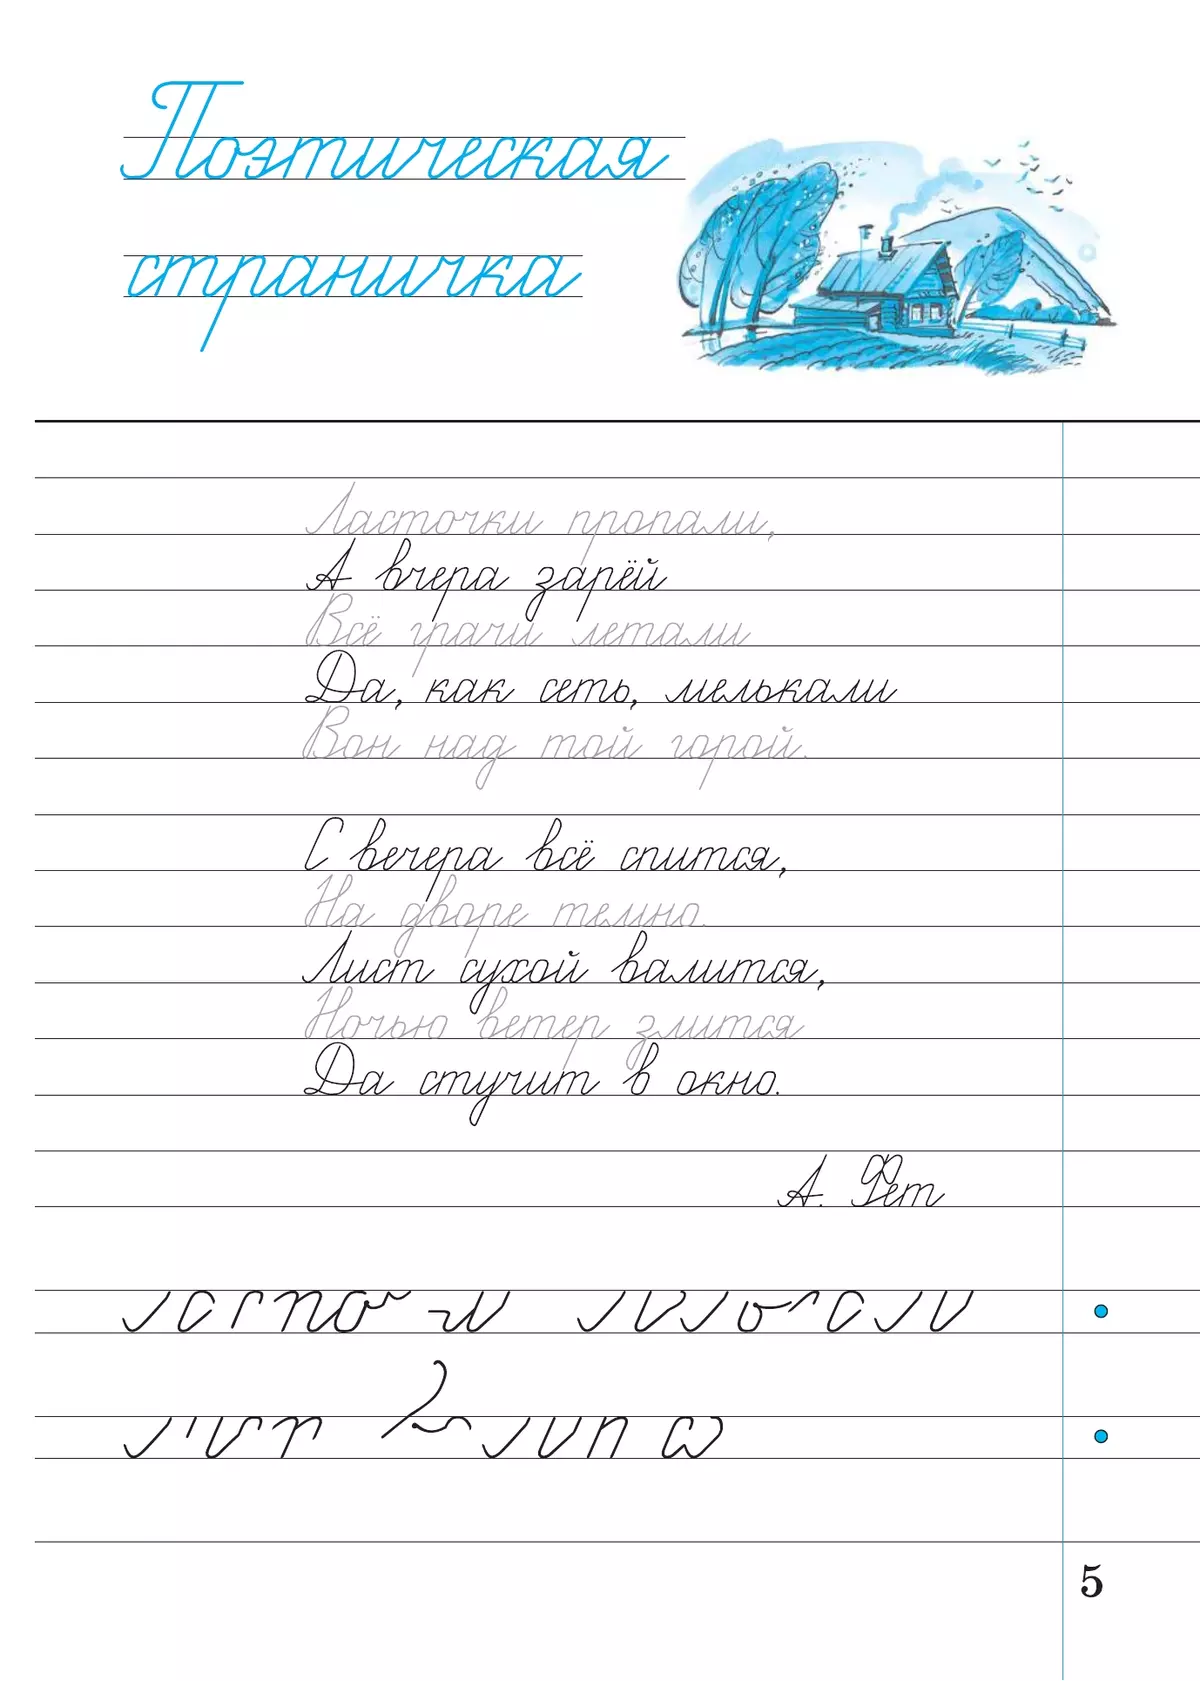 Поэтическая
страничка
Ласточки пропали,
А вчера зарёй
Всё грачи летали
Да, как сеть, мелькали
Вон над той горой.
С вечера всё спится,
На дворе темно.
Лист сухой валится,
Ночью ветер злится
Да стучит в окно.
А. Фет
5